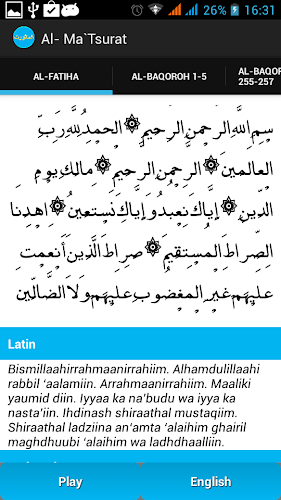 26% 16:31
Al- Ma`Tsurat
AL-FATIHA
AL-BAQOROH 1-5
AL-BAQOR
255-257
بِسْمِ اللَّهِ الرَّحْمَنِ الرَّحِيمِ ۞ الْحَمْدُ لِلَّهِ رَبِّ
الْعَالَمِينَ ۞ الرَّحْمَنِ الرَّحِيمِ ۞ مَالِكِ يَوْمِ
الدِّينِ ۞ إِيَّاكَ نَعْبُدُ وَإِيَّاكَ نَسْتَعِينُ ۞ اهْدِنَا
الصِّرَاطَ الْمُسْتَقِيمَ ۞ صِرَاطَ الَّذِينَ أَنْعَمْتَ
عَلَيْهِمْ غَيْرِ الْمَغْضُوبِ عَلَيْهِمْ وَلَا الضَّالِّينَ
Latin
Bismillaahirrahmaanirrahiim. Alhamdulillaahi
rabbil ‘aalamiin. Arrahmaanirrahiim. Maaliki
yaumid diin. Iyyaa ka na’budu wa iyya ka
nasta’iin. Ihdinash shiraathal mustaqiim.
Shiraathal ladziina an’amta ‘alaihim ghairil
maghdhuubi ‘alaihim wa ladhdhaalliin.
Play
English